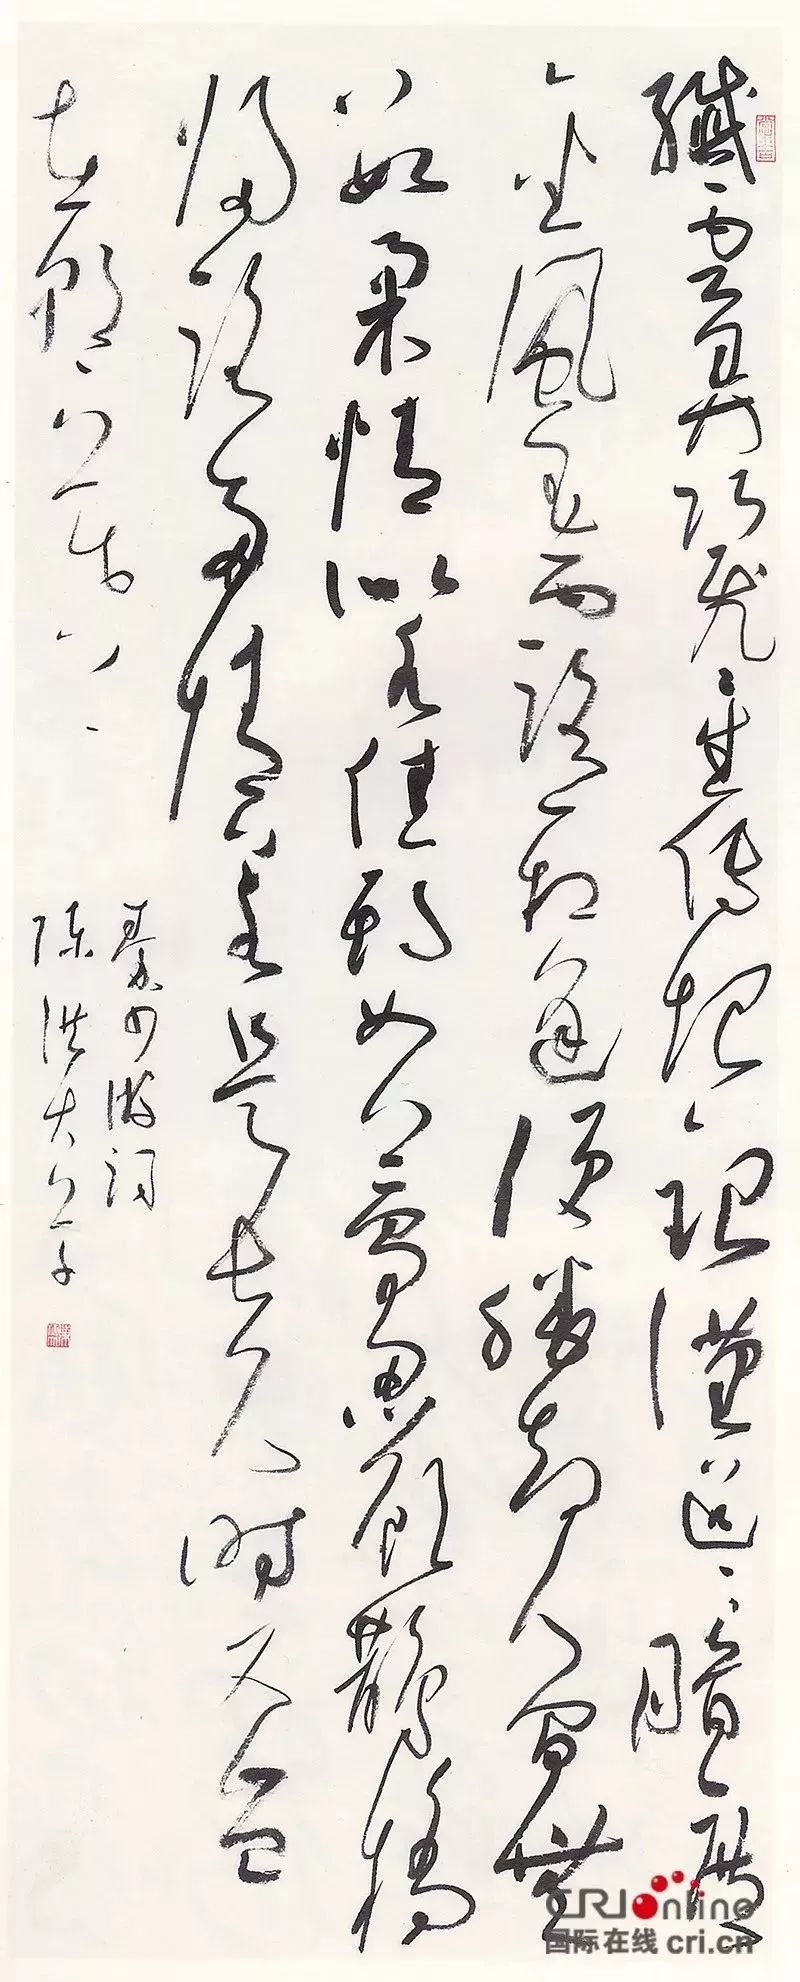 纖雲弄巧飛星傳恨銀漢迢迢暗度
金風玉露一相逢便勝却人間無
數柔情似水佳期如夢忍顧鵲橋
歸路兩情若是久長時又豈
在朝朝暮暮
秦少游詞
陳洪
CRI online
国际在线 cri.cn